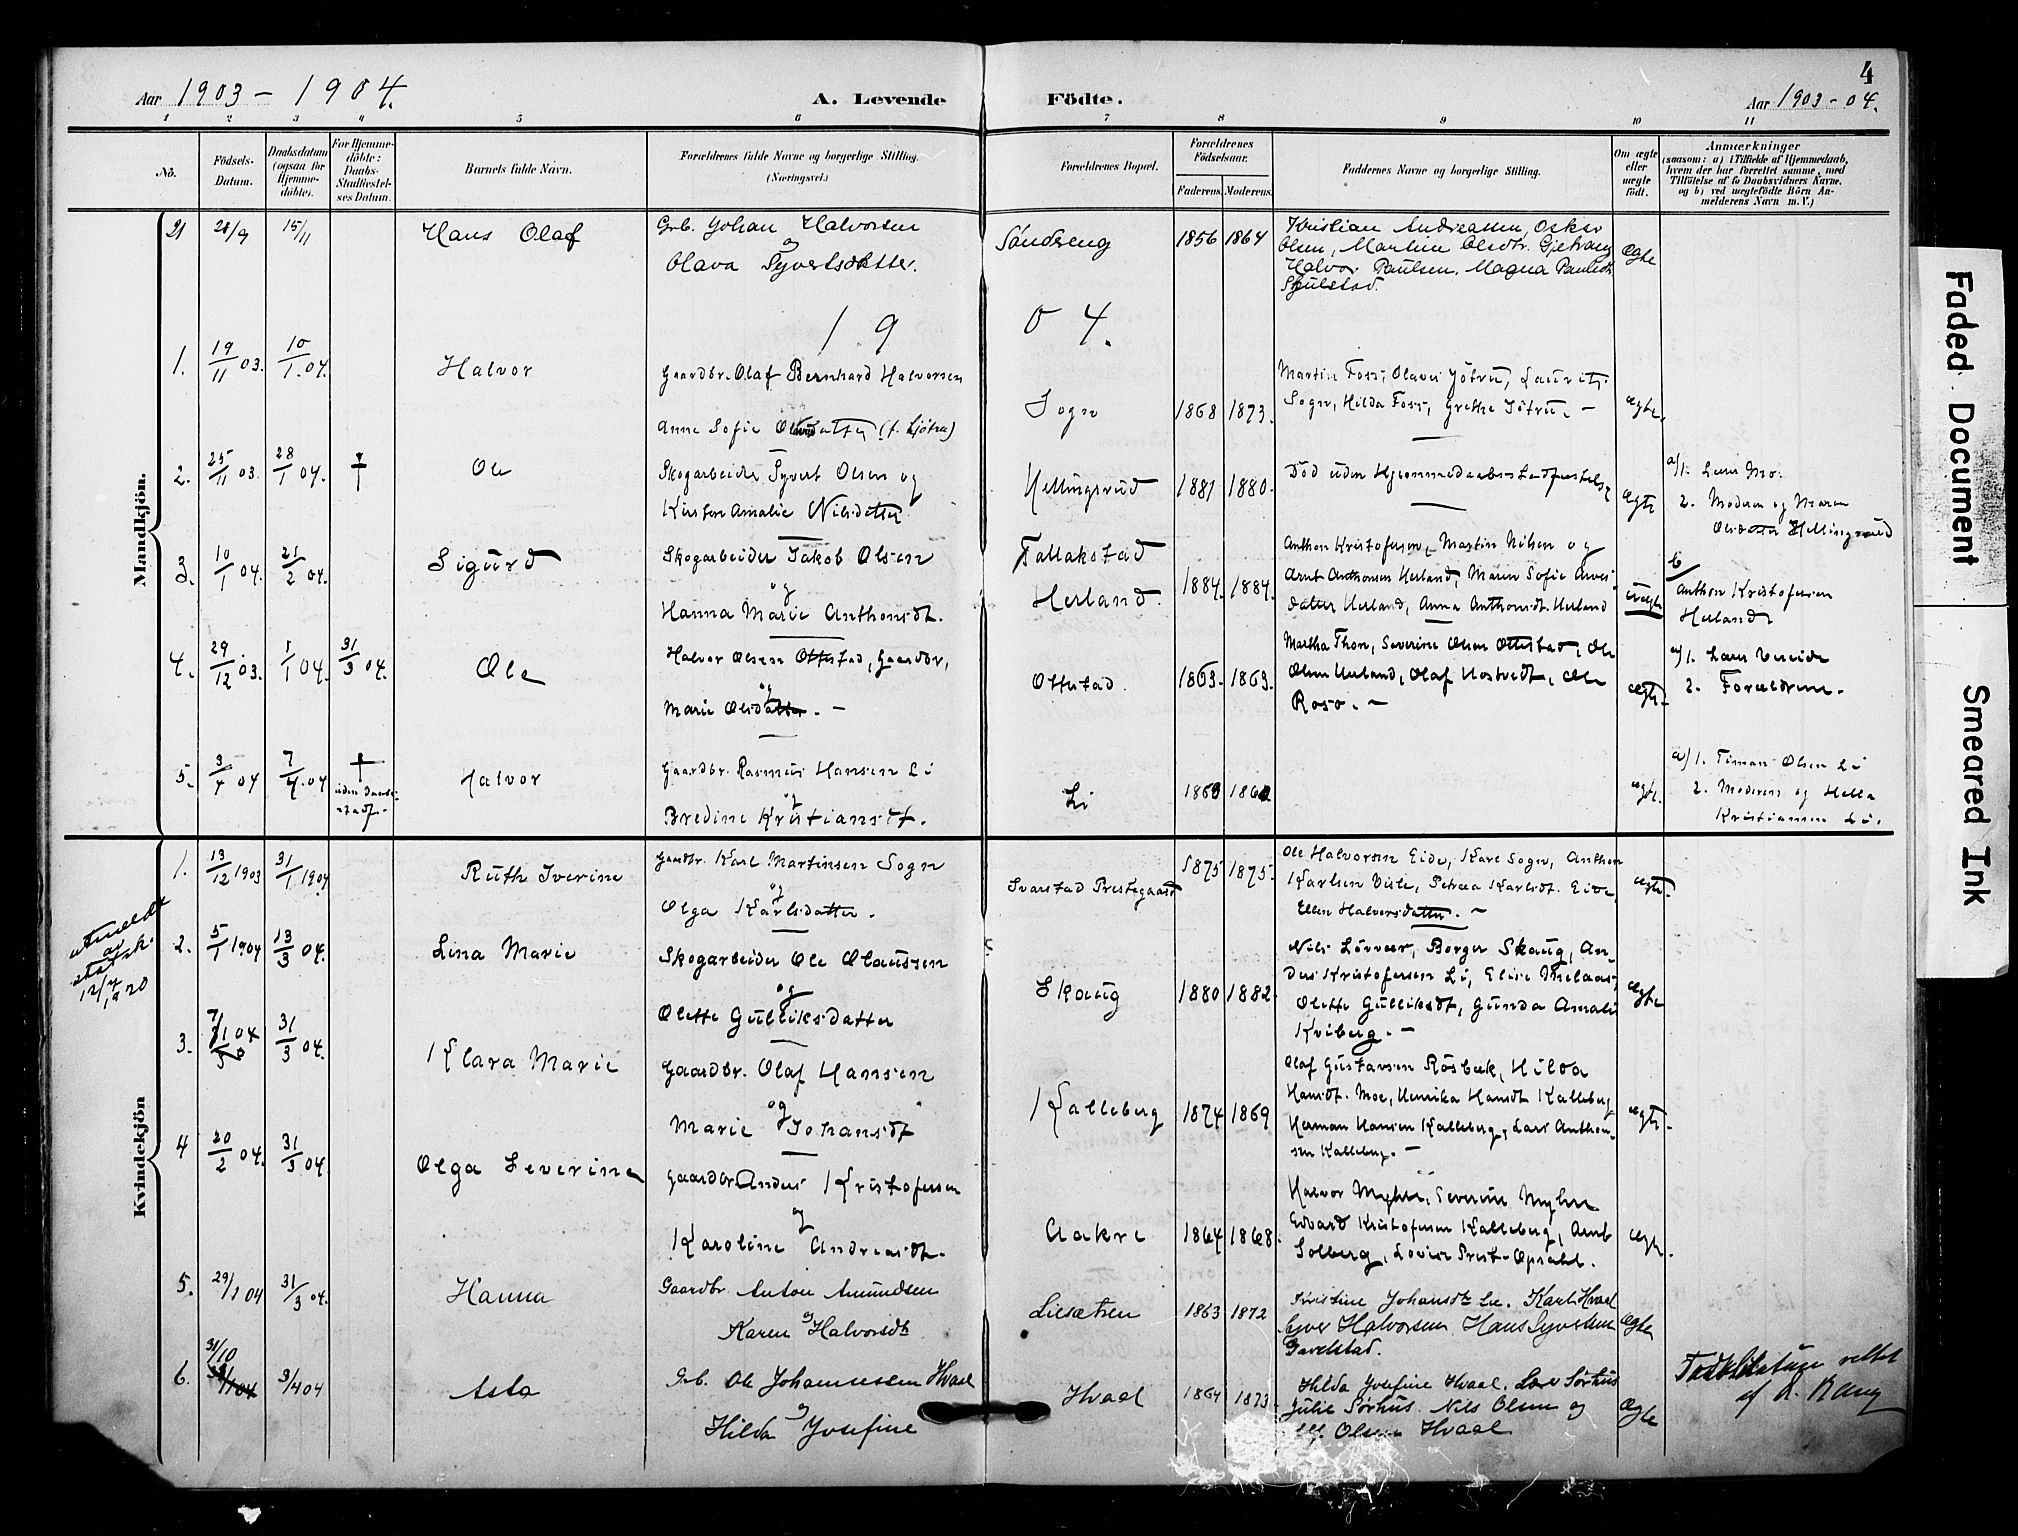 4
Aar 1903 - 1904.
A. Levende Födte.
Aar 1903 - 04.
1 2 3 4 5 6 7 8 9 10 11
No.
Födsels-Datum.
Daabsdatum (ogsaa for Hjemme-döbte).
For Hjemme-döbte: Daabs-Stadfæstel-ses Datum.
Barnets fulde Navn.
Forældrenes fulde Navne og borgerlige Stilling. (Næringsvei.)
Forældrenes Bopæl.
Forældrenes Födselsaar.
Faderens. Moderens.
Faddernes Navne og borgerlige Stilling.
Om ægte eller uægte födt.
Anmærkninger
(saasom: a) i Tilfælde af Hjemmedaab,
hvem der har forrettet samme, med
Tilföielse af to Daabsvidners Navne,
og b) ved uægtefödte Börn An-
melderens Navn m. V.)
Mandkjön.
21 28/9 15/11 Hans Olaf Grb. Johan Halvorsen og Olava Syvertsdatter. Söndreng 1856 1864 Kristian Andreassen, Oskar
Olsen, Martine Olsdtr. Gjetrang
Halvor Paulsen, Magna Paulsdt
Skjulstad. Ægte
19 04.
1. 19/11 03. 10/1. 04. Halvor Gaardbr. Olaf Bernhard Halvorsen
Anne Sofie Olavsdatter (f. Sjötru) Sogn 1868 1873. Martin Foss, Olava Jötru, Laurits
Sogn, Hilda Foss, Grethe Jötru. — ægte.
2. 25/11 03. 28/1 04. † Ole Skogarbeider Syvert Olsen og
Kirstine Amalie Nilsdatter Hellingsrud 1881 1880. Död uden Hjemmedaabsstadfæstelse ægte a/1. Lars Mo.
2. Moderen og Maren
Olsdatter Hellingsrud
3. 10/1 04. 21/2 04. Sigurd Skogarbeider Jakob Olsen
og
Hanna Marie Anthonsdt. Fallakstad
Herland. 1884. 1884. Anthon Kristofersen, Martin Nilsen og
Arnt Anthonsen Herland, Maren Sofie Arves-
datter Herland, Anna Anthonsdt. Herland uægte b/
Anthon Kristofersen
Herland
4. 29/12 03. 1/1 04. 31/3 04. Ole Halvor Olsen Ottestad, Gaardbr,
og
Marie Olsdatter. — Ottestad. 1863. 1863. Martha Thon, Severine Olsen Ottestad, Ole
Olsen Herland, Olaf Hostvedt, Ole
Roso. — ægte. a/1. Lars Vereide
2. Forældrene.
5. 3/4 04 7/4. 04 † uden daabs-
stadf. Halvor Gaardbr. Rasmus Hansen Li
og
Bredine Kristiansdt. Li ægte. a/1. Timan Olsen Li
2. Moderen og Hella
Kristiansen Li.
Kvindekjön
1. 13/12 1903 31/1 1904 Ruth Iverine Gaardbr. Karl Martinsen Sogn
og
Olga Karlsdatter. Svarstad Prestegaard 1875 1875. Ole Halvorsen Eide, Kare Sogn, Anthon
Karlsen Visle, Petrea Karlsdt. Eide,
Ellen Halvorsdatter. — ægte.
utmeldt
av
statsk.
12/4 1920
2. 5/1 1904 13/3 04. Lina Marie Skogarbeider Ole Olaussen
og
Olette Gulliksdatter Skaug 1880 1882. Nils Lövaas, Borger Skaug, An-
ders Kristofersen Li, Elise Melaas,
Olette Gulliksdt, Gunda Amalie
Kviberg. — ægte
3. 7/1 04 31/3 04. Klara Marie Gaardbr. Olaf Hansen
og
Marie Johansdt Kalleberg 1874 1869 Olaf Gustavsen Rösbæk, Hilda
Hansdt. Moe, Henrika Hansdt Kalleberg
Herman Hansen Kalleberg, Lars Anthon-
sen Kalleberg. — ægte.
4 20/2 04. 31/3 04 Olga Severine Gaardbr. Anders Kristofersen
og
Karoline Andreasdt. Aakre 1864 1868. Halvor Myhre, Severine Myhre
Edvard Kristofersen Kalleberg, Arnt
Solberg, Lovise Prest-Opsahl. ægte.
5. 29/1 04 31/3 04. Hanna Gaardbr. Anton Amundsen
og
Karen Halvorsdt Liesætren 1863 1872 Kristine Johansdt. Lie. Karl Hvaal
Iver Halvorsen, Hans Syvertsen
Gavelstad. Ægte
6. 31/10 3/4 04 Asta Grb. Ole Johannessen Hvaal
og
Hilda Josefine Hvaal 1864 1873 Hilda Josefine Hvaal. Lars Sörhus
Julie Sörhus. Nils Olsen og
Alf Olsen Hvaal Ægte af R. Rang
Faded Document
Smeared Ink